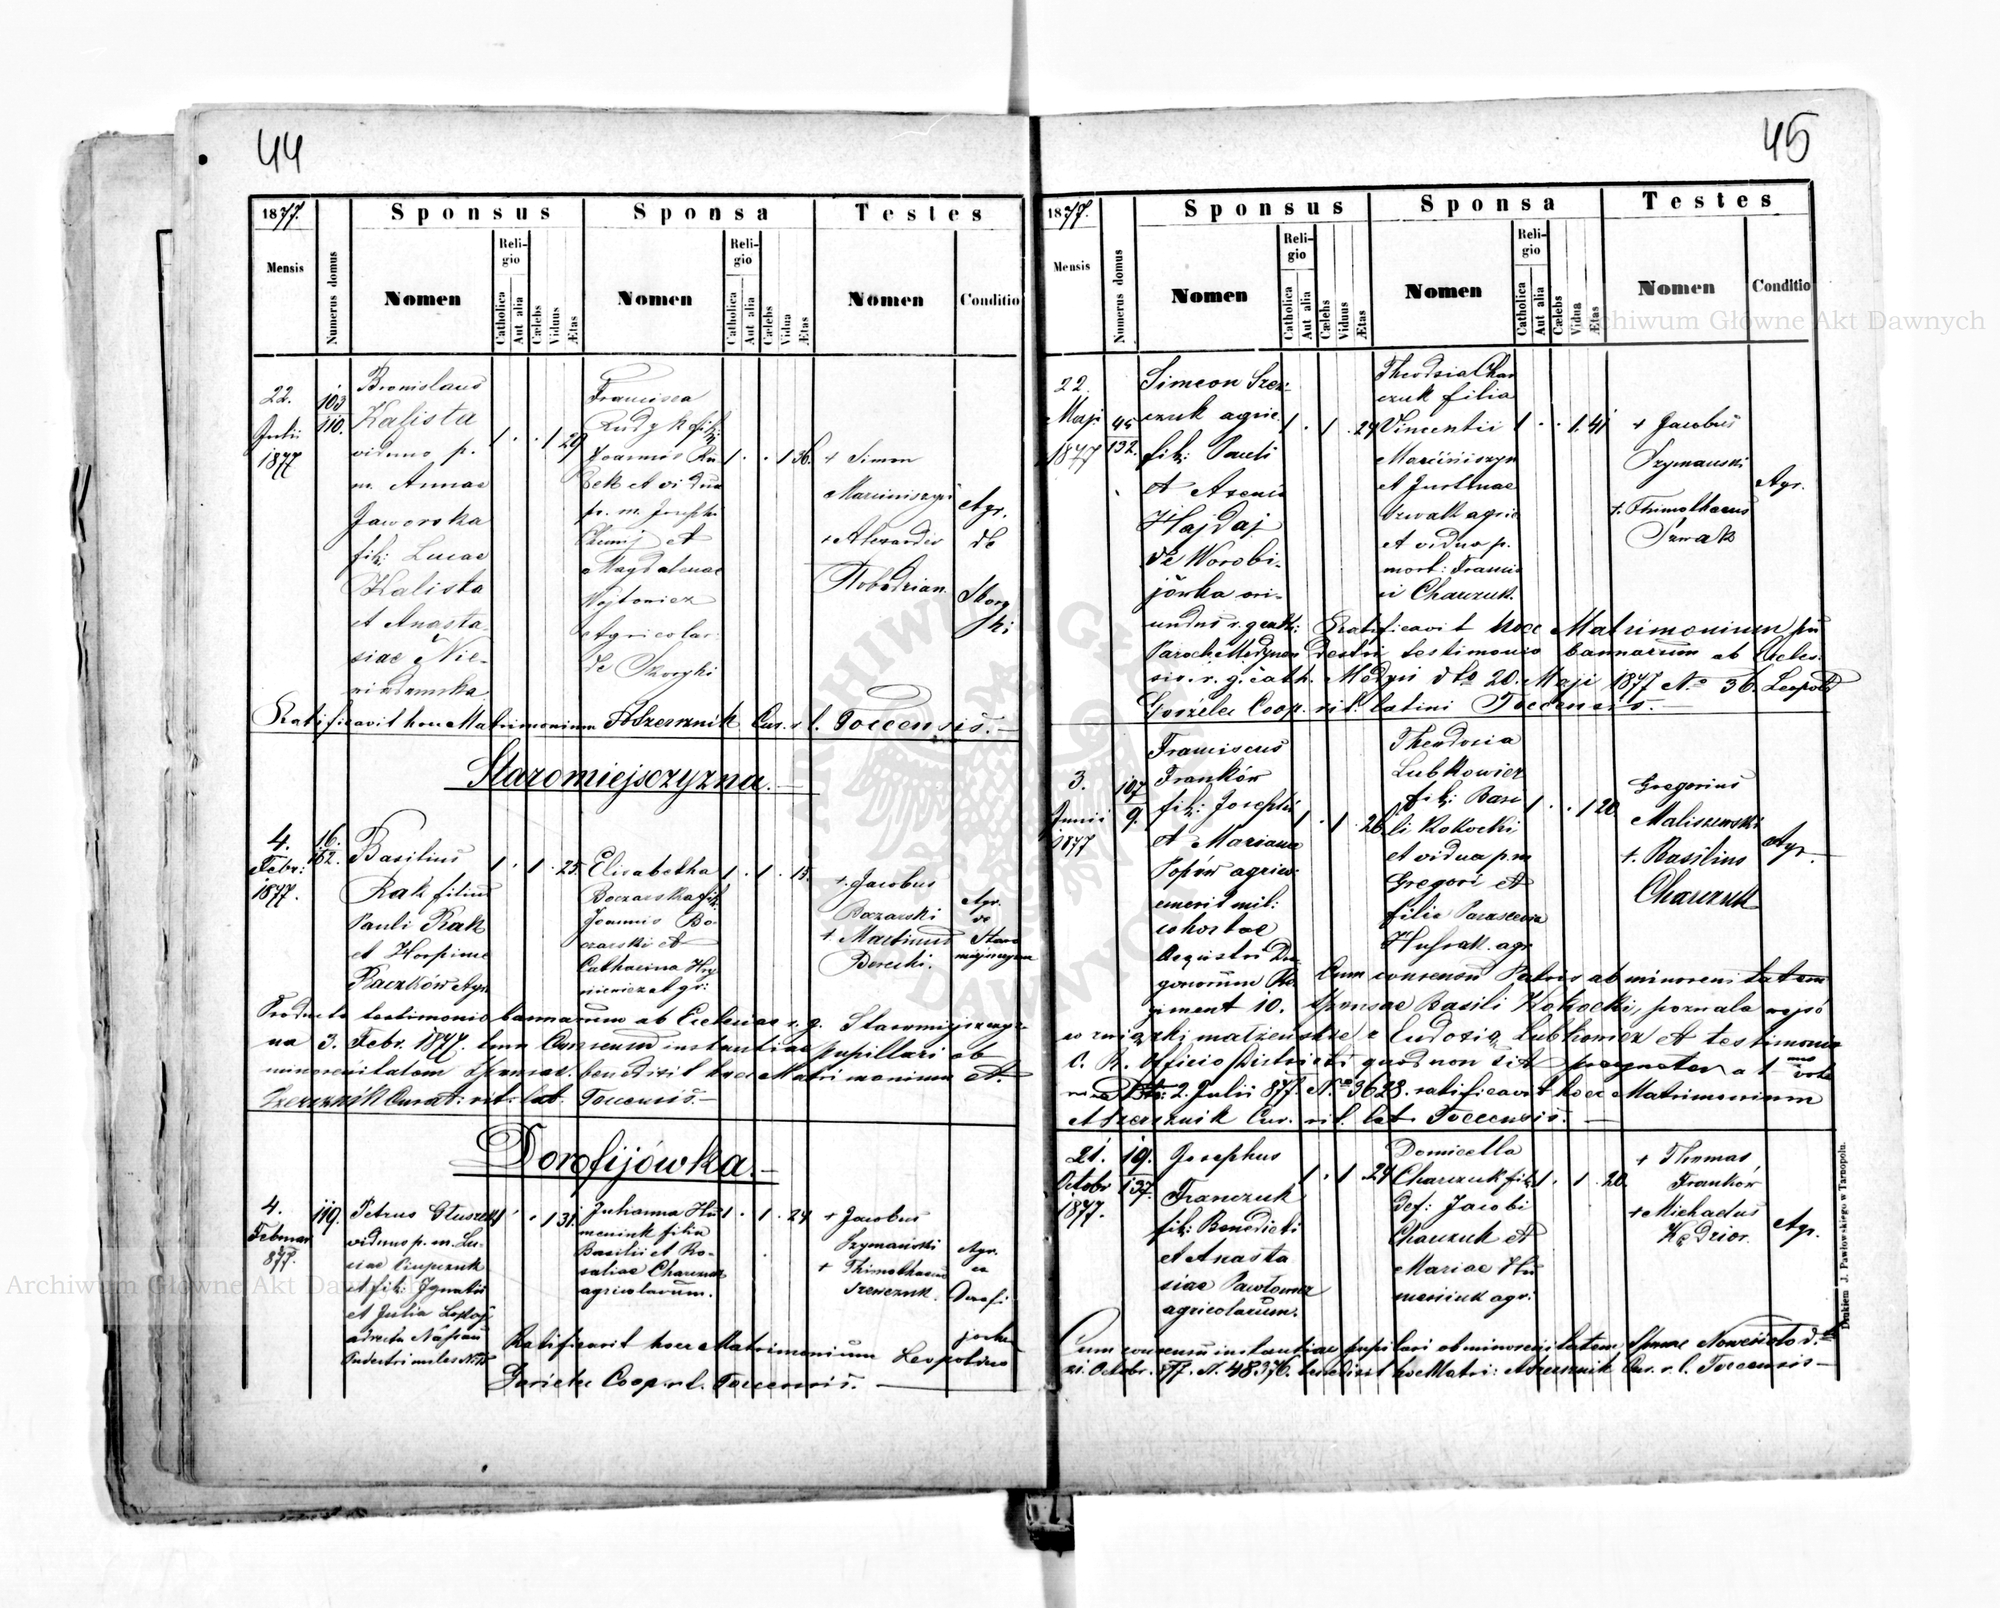 44
1877.
Sponsus
Sponsa
Testes
Mensis
Numerus domus
Nomen
Religio
Catholica
Aut alia
Cælebs
Viduus
Ætas
Nomen
Religio
Catholica
Aut alia
Cælebs
Vidua
Ætas
Nomen
Conditio
22.
Julii
1877
103
110.
Bronislaus
Kalista
viduus p.
m. Annae
Jaworska
fil: Lucae
Kalista
et Anasta
siae Nie-
1 . . 1 29
Francisca
Rudyk fil:
Joannis Ru
et vidua
p. m. Josephi
et
Magdalenae
Wojtowicz
Agricolar.
de Skoryki
1 . . 1 36.
+ Simon
Marciniszyn
+ Alexander
Agr.
de
Skory
ki
Ratificavit hoc Matrimonium A Szersznik Cur. r. l. Toccensis.—
Staromiejszczyzna.—
4.
Febr:
1877.
16.
162.
Basilius
Rak filius
Pauli Rak
et Horpinae
Raczków Agr.
1 . 1 . 25.
Elisabetha
Boczarska fil.
Joannis Bo-
czarski et
Catharina Hry
niewicz agr:
1 . 1 . 15.
+ Jacobus
Boczarski
+ Martinus
Berecki.
Agr.
de
Staro
miejszczyzna
Producto testimonio bannorum ab Ecclesiae r. g. Staromiejszczyz-
na 3. Febr. 1877. cum Consensu instantiae pupillari ob
minorenitatem Sponsae. benedixit hoce Matrimonium A.
Szersznik Curat: rit: lat. Toccensis.—
Dorofijówka.—
4.
Februar
877.
119.
Petrus Głuszek
viduus p. m. Lu-
ciae
et fil: Ignatii
et Julia
1 . . 1 31
Juhanna Hu
meniuk filia
Basilii et Ro-
saliae Charczuk
agricolarum.
1 . 1 . 24
+ Jacobus
Szymański
+ Thimotheus
Szewczuk.
Agr.
ex
Dorofi
jówka
Ratificavit hoce Matrimonium Leopoldus
Coop. r. l. Toccensis.—
45
1877.
Sponsus
Sponsa
Testes
Mensis
Numerus domus
Nomen
Religio
Catholica
Aut alia
Cælebs
Viduus
Ætas
Nomen
Religio
Catholica
Aut alia
Cælebs
Vidua
Ætas
Nomen
Conditio
22.
Maji
1877
45
132.
Simeon Szew-
czuk agric.
fil: Pauli
et Axenia
Hajdaj
de Worobi-
jówka ori-
undus r. g. cath:
1 . 1 . 24
Theodsia Char
czuk filia
Vincentii
Marciniszyn
et Justinae
agric
et vidua p.
mort: Francis
ci Charczuk.
1 . . 1. 41
+ Jacobus
Szymanski
+. Thimotheus
Agr.
Ratificavit hoce Matrimonium
testimonio bannorum ab Eccles.
sis. r. g. cath. Medyn dto 20. Maji 1877 No 36. Leopold
Coop. rit. latini Toccensis.—
3.
Junii
1877
107
9.
Franciscus
Franków
fil: Josephi
et Marianna
Popów agric.
emerit mil:
cohortae
giment 10.
1 . 1 . 26
Theodosia
Lubkowicz
fil: Basi
li Kokocki
et vidua p. m
Gregori et
filia Parascevia
agr.
1 . . 1 20
Gregorius
Maliszewski
+. Basilius
Charczuk
Agr.
Cum consensu Patris ob minorenitatem
Sponsae Basili Kokocki,
związki małżeńskie z Eudosią Lubkowicz et testimonio
C. R. Officio Districti quod non sit a 1mo
2 Julii 877. No 3628. ratificavit hoce Matrimonium
A Szersznik Cur. rit. lat. Toccensis.—
21.
Octobr
1877.
19.
137.
Josephus
Franczuk
fil: Benedicti
et Anasta
siae
agricolarum.
1 . 1 . 24
Domicella
Charczuk fil:
def: Jacobi
Charczuk et
Mariae Hu
meniuk agr.
1 . 1 . 20.
+ Thomas
Franków
+ Michaelus
Kędzior.
Agr.
Cum consensu instantiae pupilari ob minorenitatem Sponsae
Octobr. 877. N. 48376. benedixit hoc Matri: A Szersznik Cur. r. l. Toccensis—
Drukiem J. Pawłowskiego w Tarnopolu.
Archiwum Główne Akt Dawnych
Archiwum Główne Akt Dawnych
ARCHIWUM GŁÓWNE AKT DAWNYCH